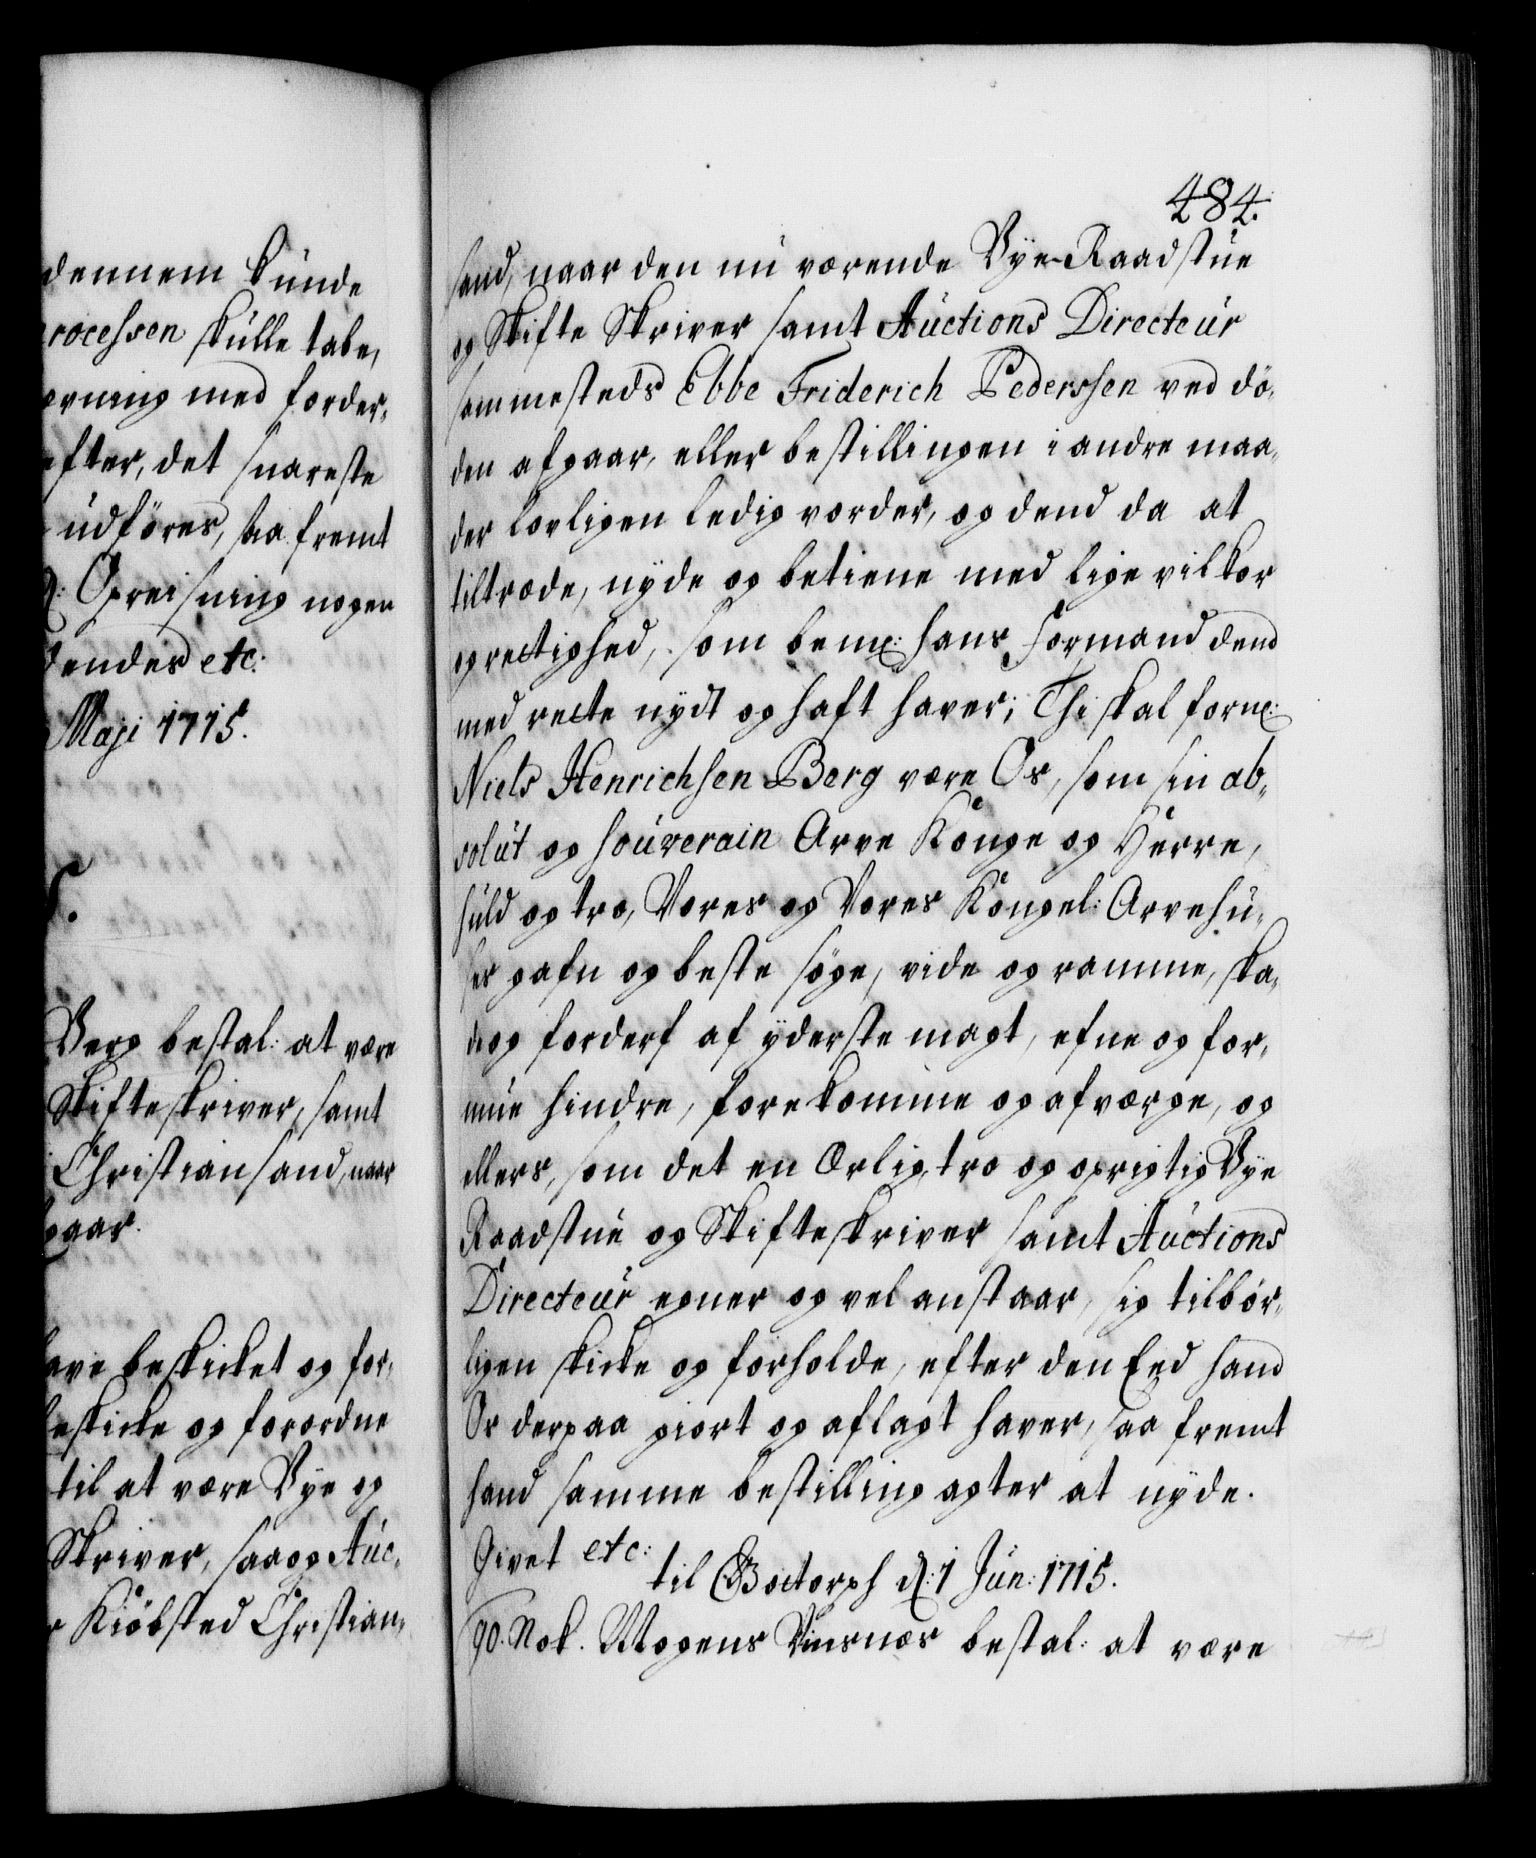 dennem kunde
rocessen skulle tabe,
evning med forder,
efter, det snareste
udföres, saa fremt
Opreisning nogen
endes etc:
Maji 1715.
Berg bestal: at være
Skifteskriver, samt
Christiansand, naar
gaar.
ave beskicket og for,
eskicke og forordne
til at være Bye og
Skriver, saa og Auc,
Kiöbsted Christian,
484.
sand, naar den nu værende Bye-Raadstue
og Skifte Skriver samt Auctions Directeur
sammesteds Ebbe Friderich Pederssen ved dö,
den afgaar, eller bestillingen i andre maa,
der lovligen ledig vorder, og dend da at
tiltræde, nyde og betiene med lige vilkor
og rectighed, som bemt: hans Formand dend
med rette nydt og haft haver; Thi skal fornt:
Niels Henrichsen Berg være Os, som sin ab,
solut og souverain Arve Konge og Herre,
huld og tro, Vores og Vores Kongel: Arvehu,
ses gafn og beste söge, vide og ramme, ska,
de og forderf af yderste magt, efne og for,
mue hindre, forekomme og afværge, og
ellers, som det en ærlig, tro og oprigtig Bye
Raadstue og Skifteskriver samt Auctions
Directeur egner og vel anstaar, sig tilbör,
ligen skicke og forholde, efter den Eed hand
Os derpaa giort og aflagt haver, saa fremt
hand samme bestilling agter at nyde.
Givet etc:
til Gottorph d: 1 Jun: 1715.
90. Nok. Mogens Vinsnæs bestal: at være